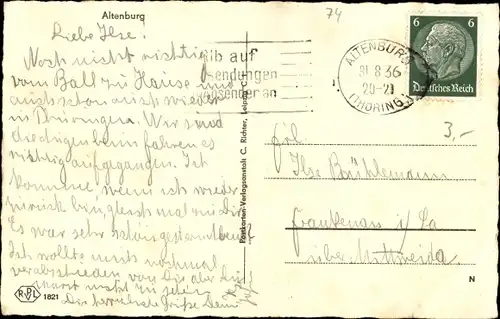 Altenburg
74
Liebe Ilse!
Noch nicht richtig
vom Ball zu Hause und
auch schon wieder
in Thüringen. Wir sind
beim fahren es
richtig aufgegangen. Ich
komme, wenn ich wieder
zurück bin, gleich mal zu Dir.
Es war sehr schön gestern
Ich wollte mich nochmal
verabschieden von Dir aber Du
warst nicht zu sehen
Die herzlichste Grüße Deine
gib auf
sendungen
Absender an
ALTENBURG
31.8.36
20-21
(THÜRING.)
6 6
Deutsches Reich
3,-
Frl
Ilse Brühlemann
Frankenau i/Sa
über Mittweida
Postkarten-Verlagsanstalt C. Richter, Leipzig C 1
RPVL
1821
N